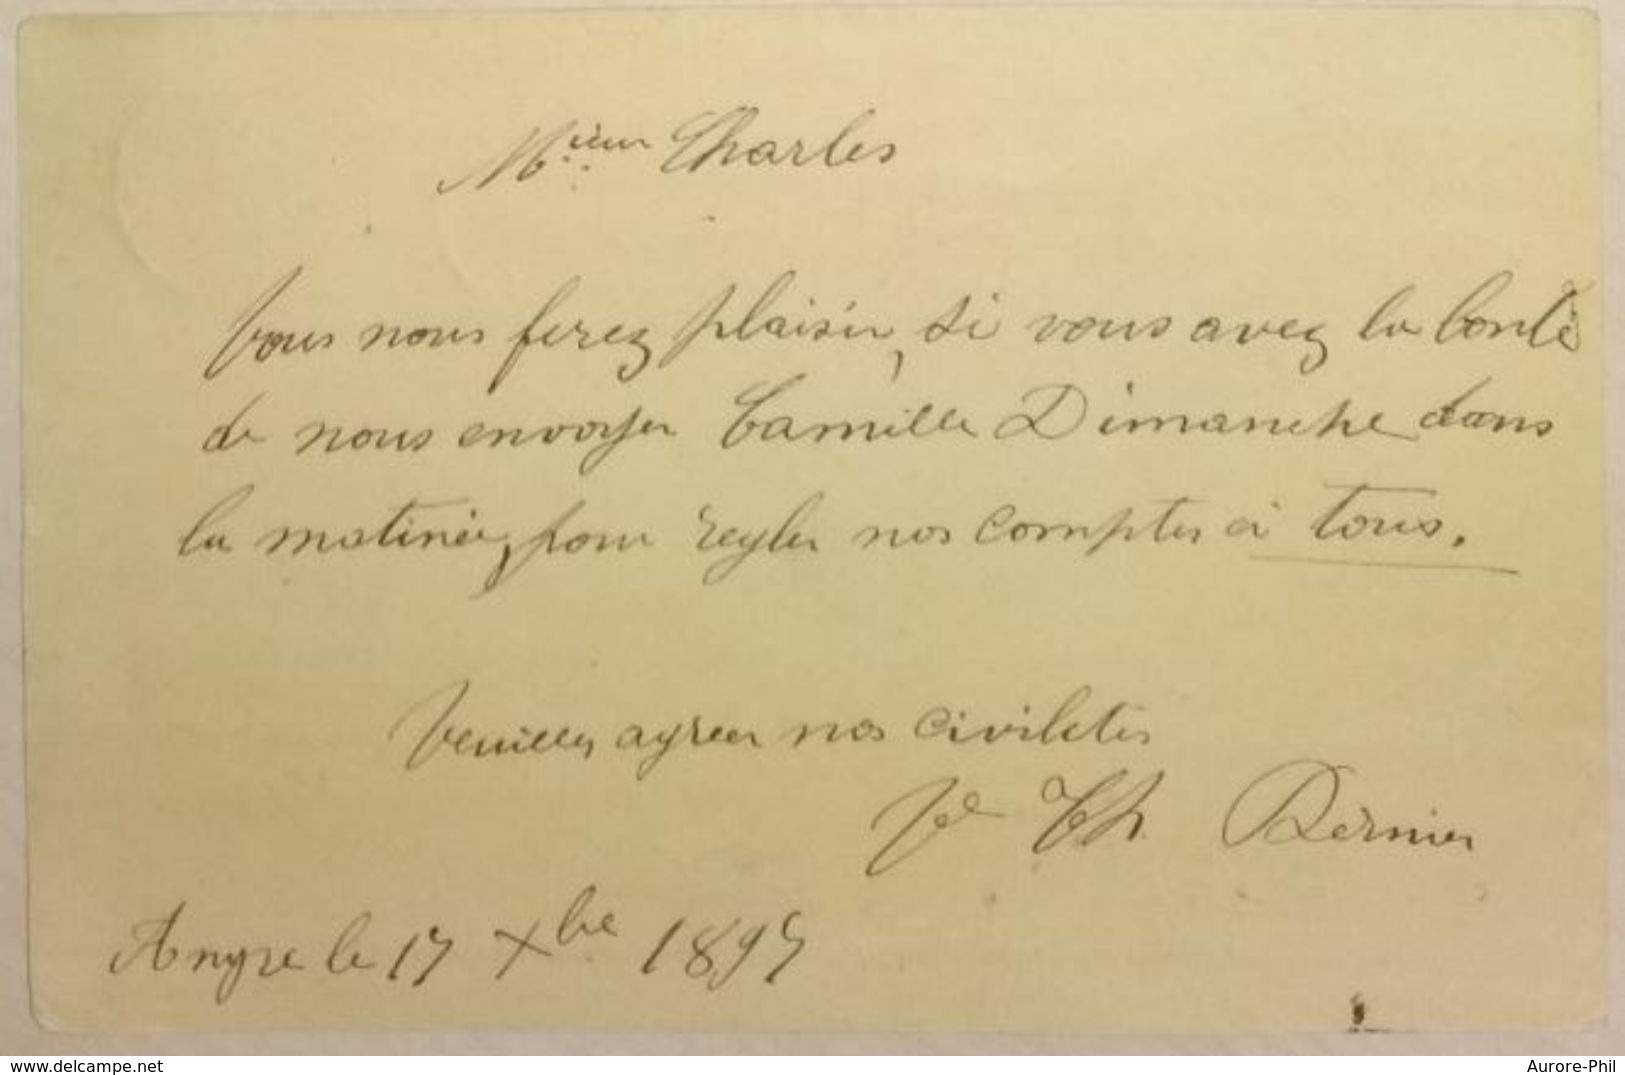 Mieur Charles
Vous nous ferez plaisir, si vous avez la bonté
de nous envoyer Camille Dimanche dans
la matinée, pour regler nos comptes à tous.
Veuillez agréer nos civilités
Ve Th. Dernier
Angre le 17 Xbre 1897
www.delcampe.net
Aurore-Phil